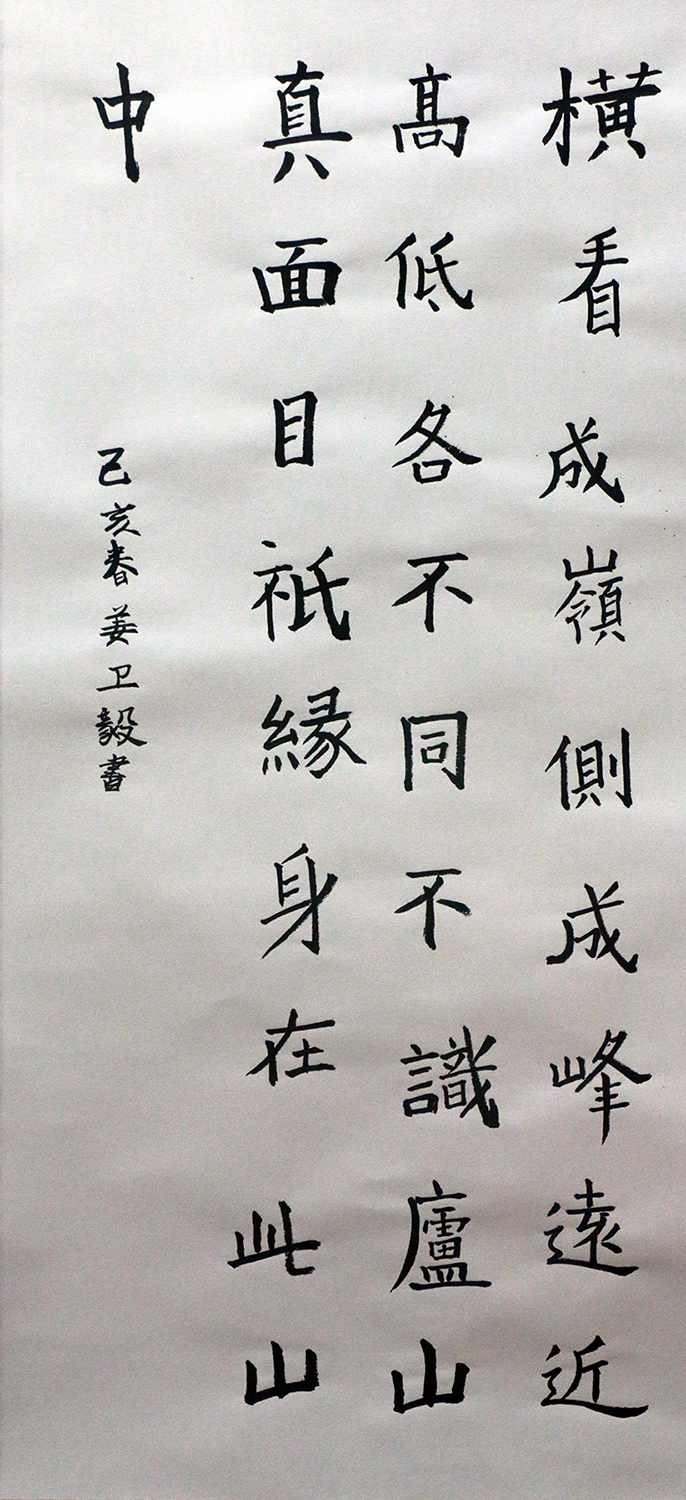 橫看成嶺側成峰遠近
高低各不同不識廬山
真面目祇緣身在此山
中
己亥春姜卫毅書